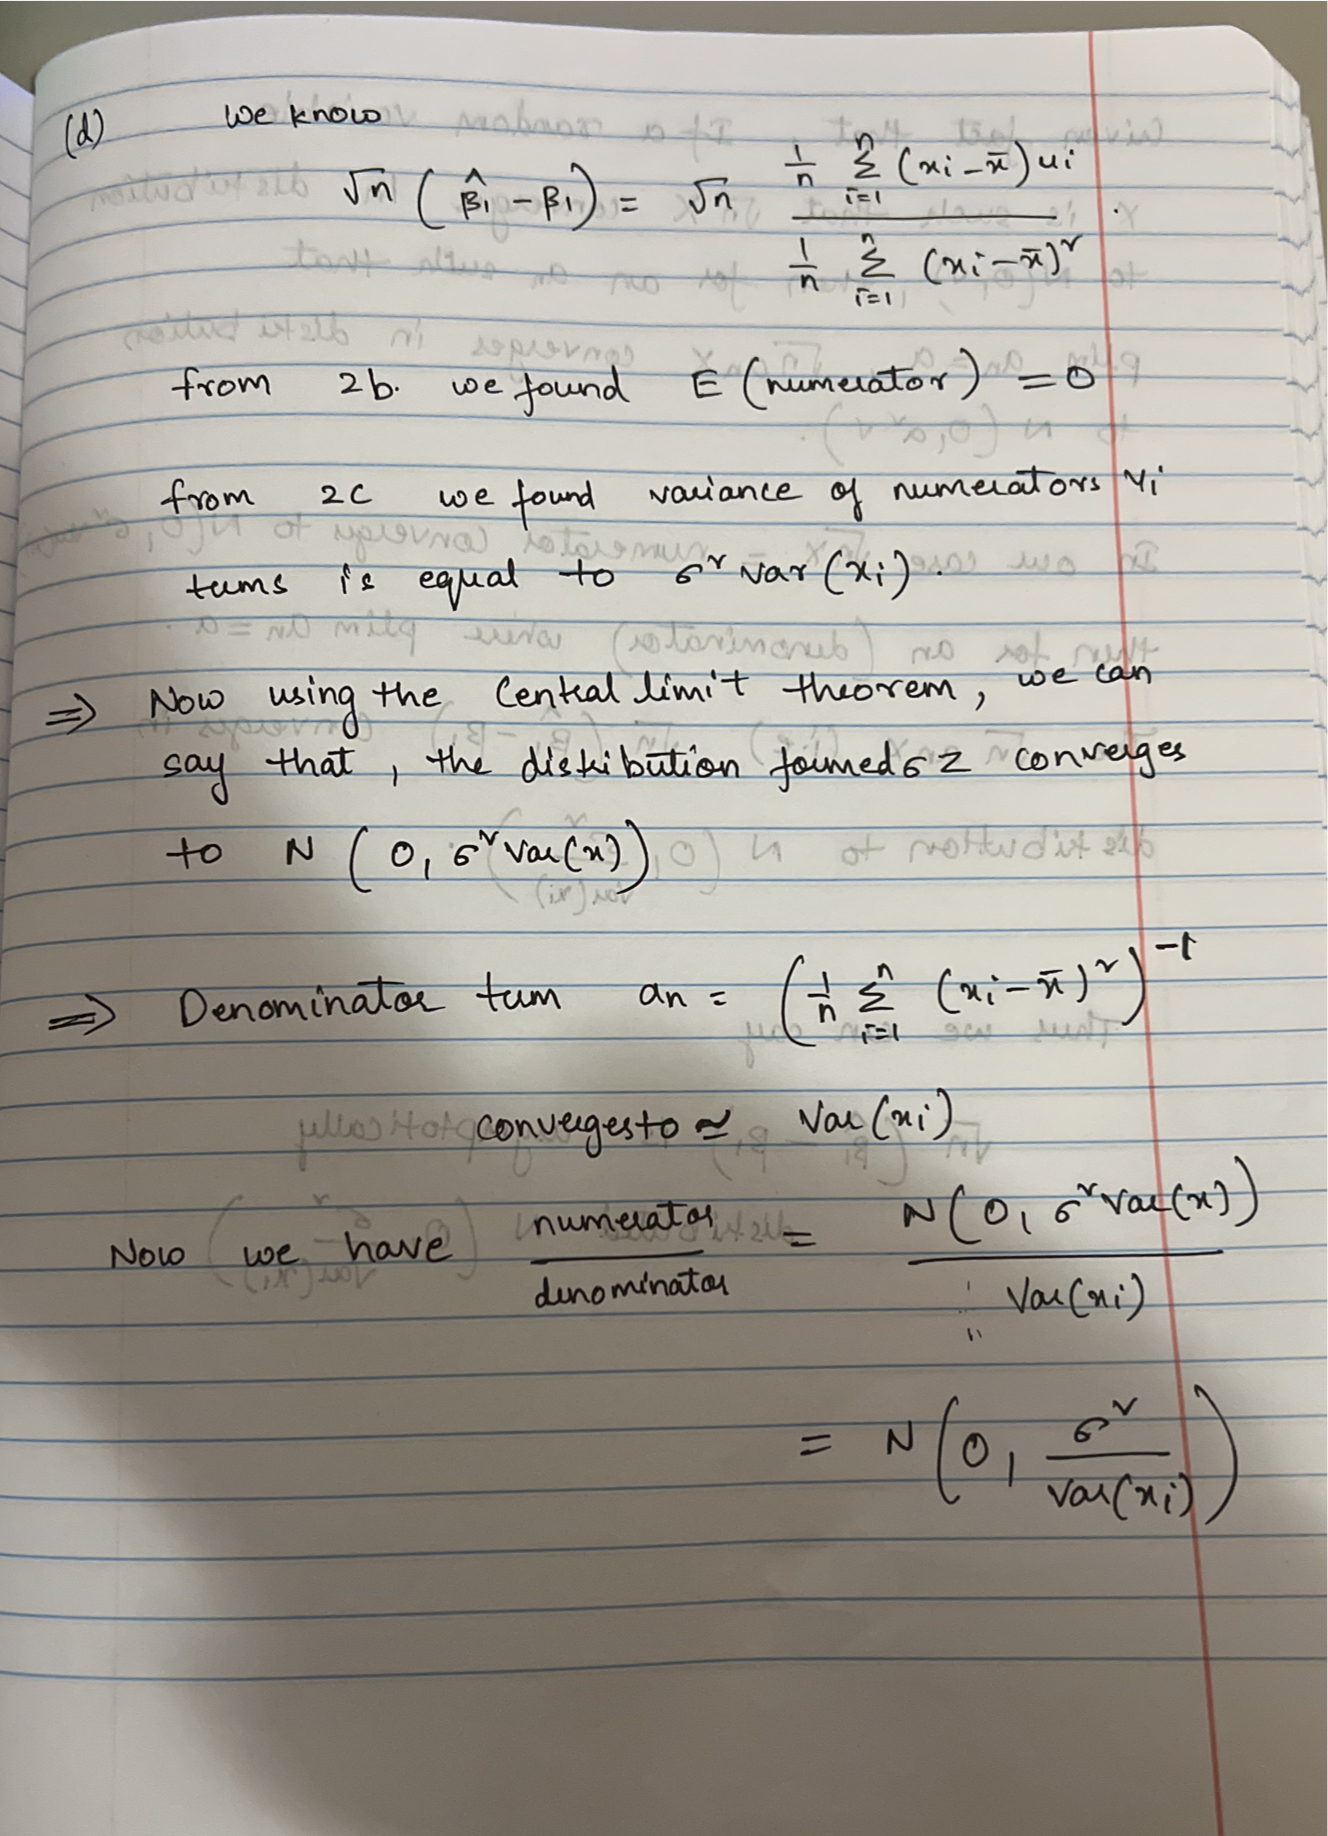 (d) we know
√n (β̂₁ - β₁) = √n (1/n Σᵢ₌₁ⁿ (xi - x̄) ui) / (1/n Σᵢ₌₁ⁿ (xi - x̄)²)
from 2b. we found E (numerator) = 0
from 2c we found variance of numerators Yi
terms is equal to σ² var (xi).
⇒ Now using the central limit theorem, we can
say that, the distribution formed σ Z converges
to N (0, σ² Var(x))
⇒ Denominator term an = (1/n Σᵢ₌₁ⁿ (xi - x̄)²)⁻¹
converges to ≃ Var (xi)
Now we have numerator/denominator = N(0, σ² Var(x)) / Var(xi)
= N(0, σ²/Var(xi))